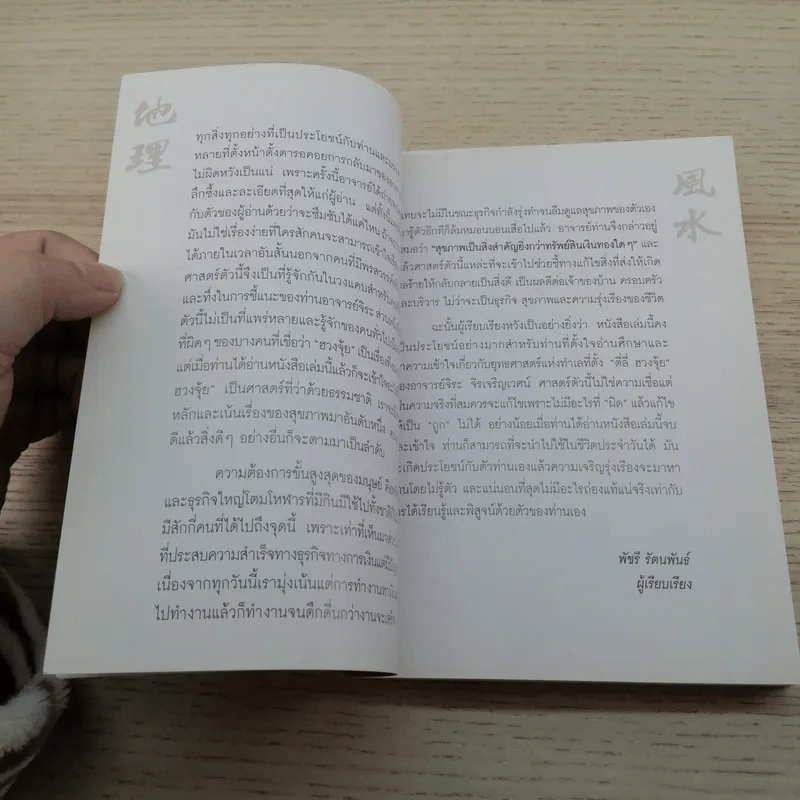 地
理
ทุกสิ่งทุกอย่างที่เป็นประโยชน์กับท่านและ
หลายที่ตั้งหน้าตั้งตารอคอยการกลับมาของ
ไม่ผิดหวังเป็นแน่ เพราะครั้งนี้อาจารย์ได้
ลึกซึ้งและละเอียดที่สุดให้แก่ผู้อ่าน แต่ทั้งนี้
กับตัวของผู้อ่านด้วยว่าจะซึมซับได้แค่ไหน
มันไม่ใช่เรื่องง่ายที่ใครสักคนจะสามารถเข้าใจ
ได้ภายในเวลาอันสั้นนอกจากคนที่มีพรสวรรค์
ศาสตร์ตัวนี้จึงเป็นที่รู้จักกันในวงแคบสำหรับ
และทึ่งในการชี้แนะของท่านอาจารย์จิระ
ตัวนี้ไม่เป็นที่แพร่หลายและรู้จักของคนทั่วไป
ที่ผิดๆ ของบางคนที่เชื่อว่า "ฮวงจุ้ย" เป็นเรื่อง
แต่เมื่อท่านได้อ่านหนังสือเล่มนี้แล้วก็จะเข้าใจ
ฮวงจุ้ย" เป็นศาสตร์ที่ว่าด้วยธรรมชาติ
หลักและเน้นเรื่องของสุขภาพมาอันดับหนึ่ง
ดีแล้วสิ่งดีๆ อย่างอื่นก็จะตามมาเป็นลำดับ
ความต้องการขั้นสูงสุดของมนุษย์ คือ
และธุรกิจใหญ่โตมโหฬารที่มีกินมีใช้ไปทั้งชาติ
มีสักกี่คนที่ได้ไปถึงจุดนี้ เพราะเท่าที่เห็นมา
ที่ประสบความสำเร็จทางธุรกิจทางการเงินแต่
เนื่องจากทุกวันนี้เรามุ่งเน้นแต่การทำงานหา
ไปทำงานแล้วก็ทำงานจนดึกดื่นกว่างานจะเสร็จ
風
水
แทบจะไม่มีในขณะธุรกิจกำลังรุ่งทำจนลืมดูแลสุขภาพของตัวเอง
มารู้ตัวอีกทีก็ล้มหมอนนอนเสื่อไปแล้ว อาจารย์ท่านจึงกล่าวอยู่
เสมอว่า "สุขภาพเป็นสิ่งสำคัญยิ่งกว่าทรัพย์สินเงินทองใดๆ" และ
แล้วศาสตร์ตัวนี้แหละที่จะเข้าไปช่วยชี้ทางแก้ไขสิ่งที่ส่งให้เกิด
ผลร้ายให้กลับกลายเป็นสิ่งดี เป็นผลดีต่อเจ้าของบ้าน ครอบครัว
และบริวาร ไม่ว่าจะเป็นธุรกิจ สุขภาพและความรุ่งเรืองของชีวิต
ฉะนั้นผู้เรียบเรียงหวังเป็นอย่างยิ่งว่า หนังสือเล่มนี้คง
เป็นประโยชน์อย่างมากสำหรับท่านที่ตั้งใจอ่านศึกษาและ
ทำความเข้าใจเกี่ยวกับยุทธศาสตร์แห่งทำเลที่ตั้ง "ตี่ลี่ ฮวงจุ้ย"
ของอาจารย์จิระ จิรเจริญเวศน์ ศาสตร์ตัวนี้ไม่ใช่ความเชื่อแต่
เป็นความจริงที่สมควรจะแก้ไขเพราะไม่มีอะไรที่ "ผิด" แล้วแก้ไข
ให้เป็น "ถูก" ไม่ได้ อย่างน้อยเมื่อท่านได้อ่านหนังสือเล่มนี้จบ
และเข้าใจ ท่านก็สามารถที่จะนำไปใช้ในชีวิตประจำวันได้ มัน
จะเกิดประโยชน์กับตัวท่านเองแล้วความเจริญรุ่งเรืองจะมาหา
ท่านโดยไม่รู้ตัว และแน่นอนที่สุดไม่มีอะไรถ่องแท้แน่จริงเท่ากับ
การได้เรียนรู้และพิสูจน์ด้วยตัวของท่านเอง
พัชรี รัตนพันธ์
ผู้เรียบเรียง